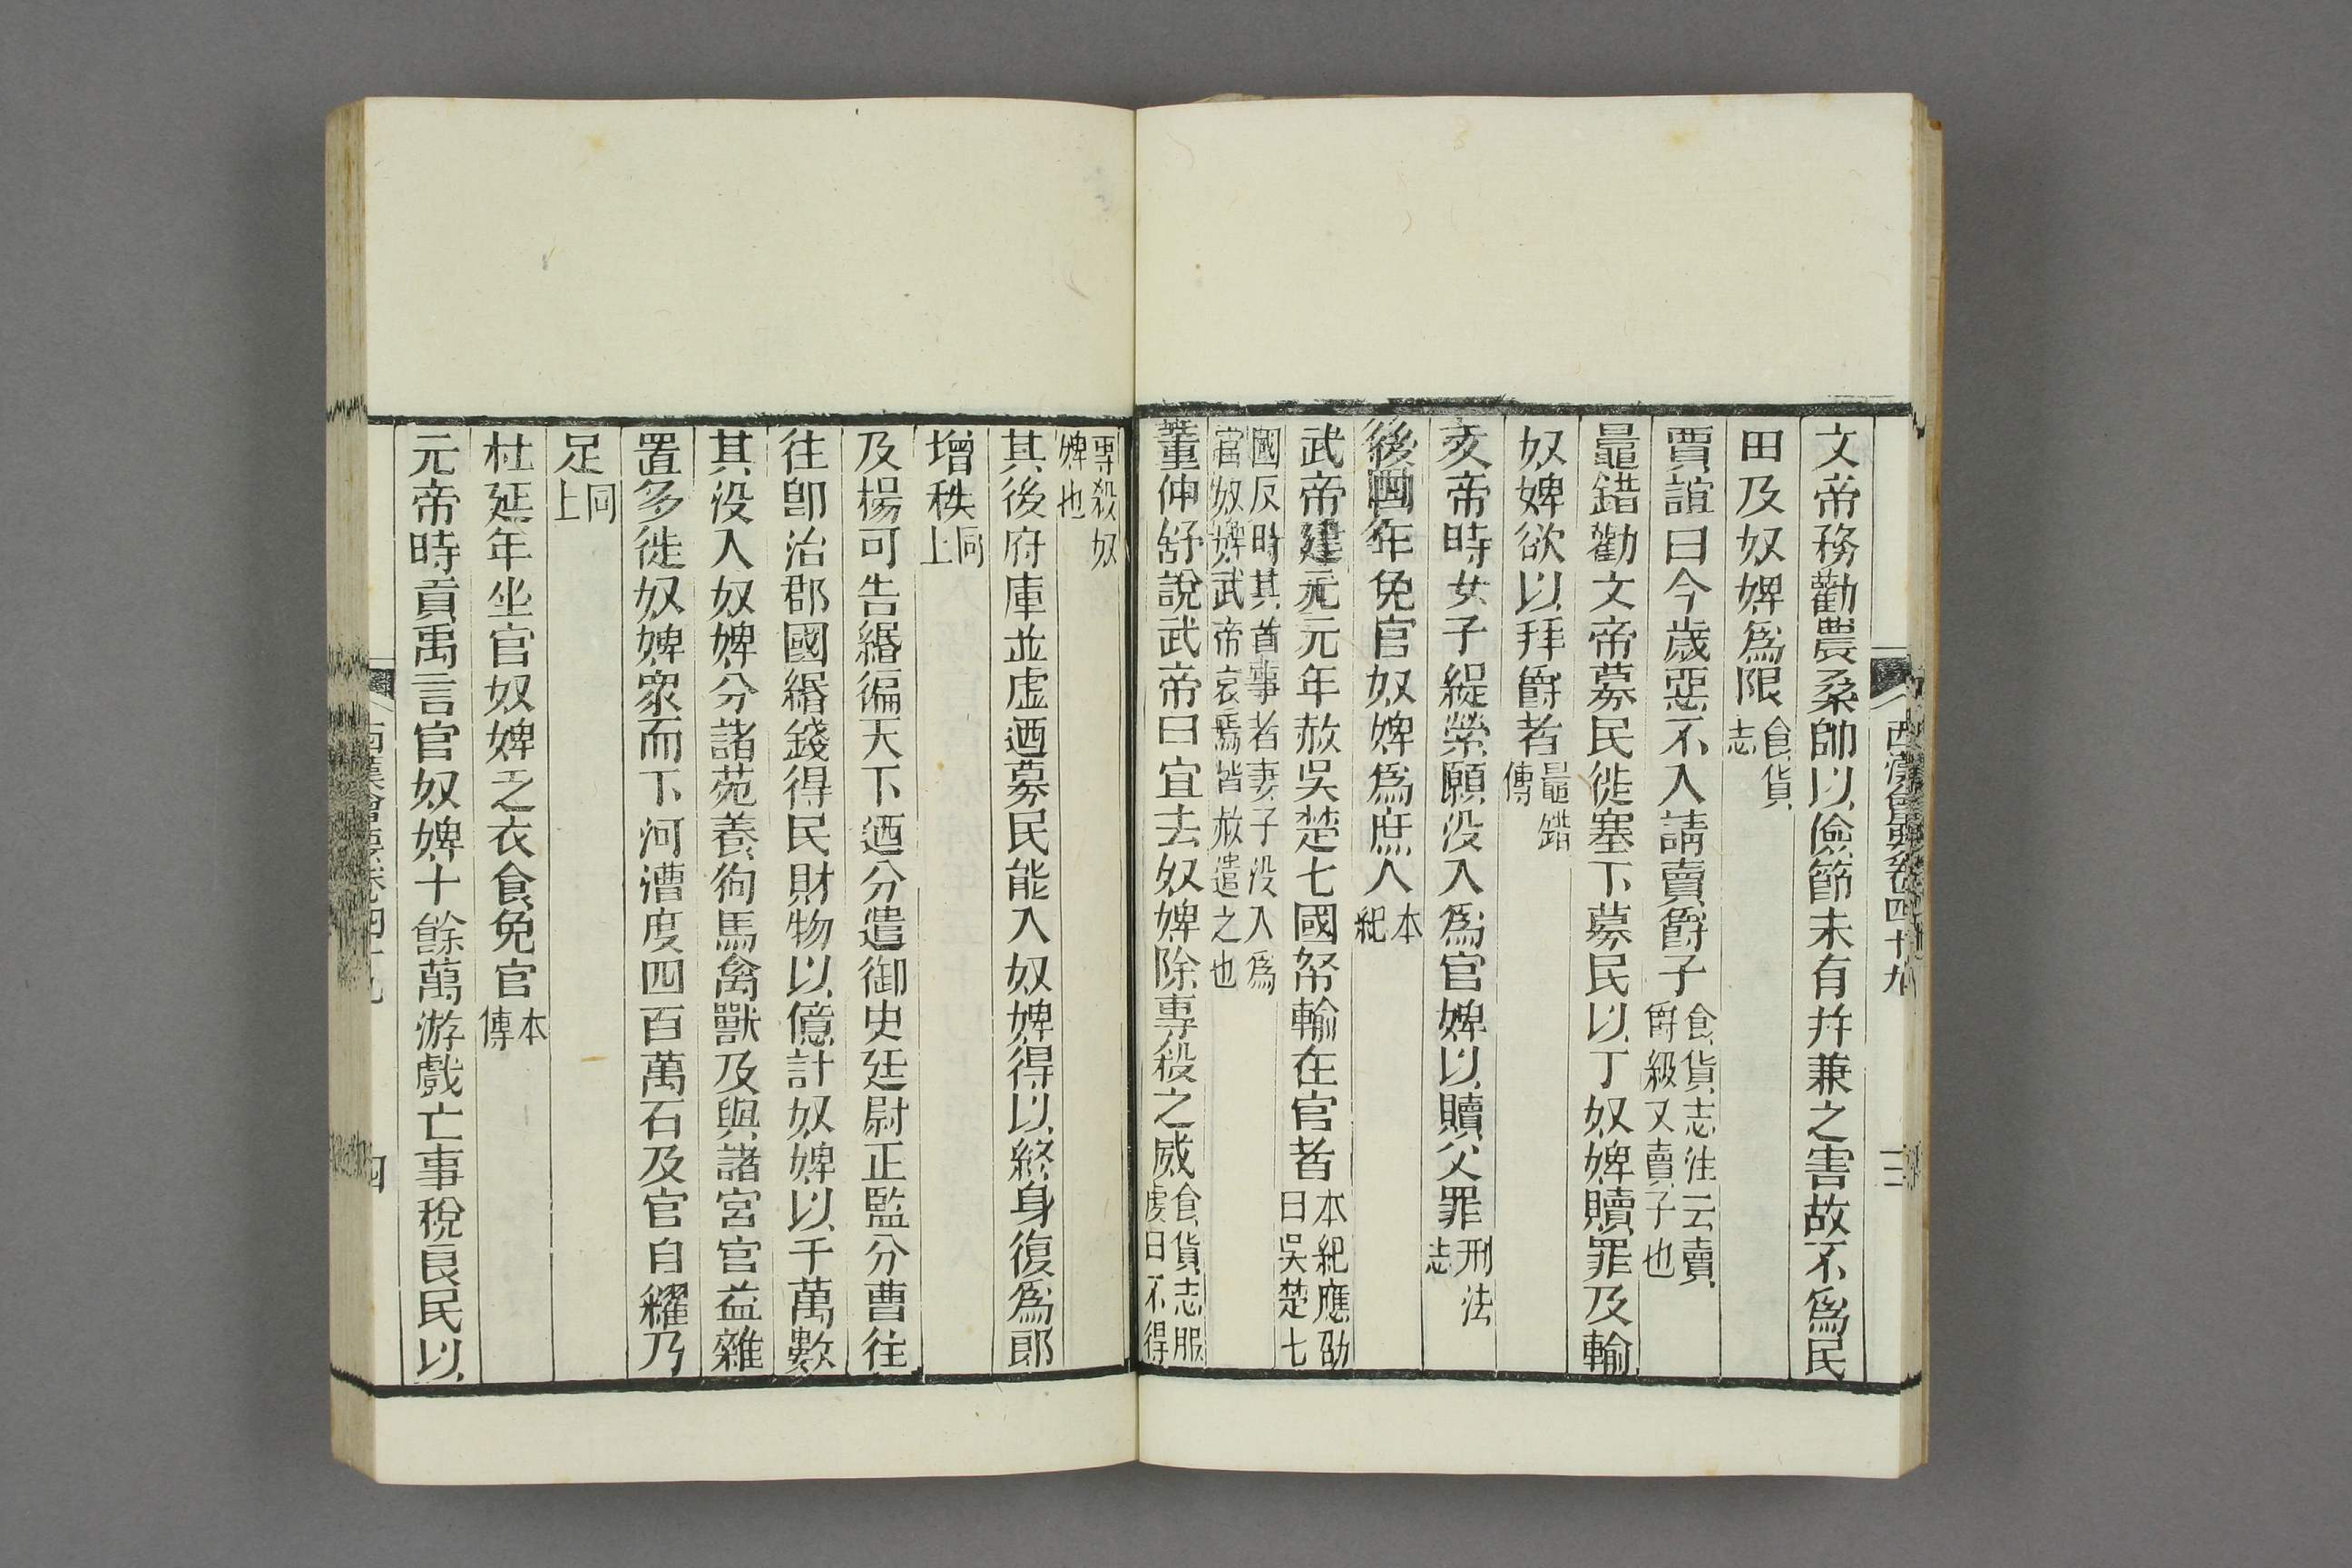 文帝務勸農桑帥以儉節未有并兼之害故不爲民
田及奴婢爲限食貨志
賈誼曰今歲惡不入請賣爵子食貨志注云賣爵級又賣子也
鼂錯勸文帝募民徙塞下募民以丁奴婢贖罪及輸
奴婢欲以拜爵者鼂錯傳
文帝時女子緹縈願沒入爲官婢以贖父罪刑法志
後四年免官奴婢爲庶人本紀
武帝建元元年赦吳楚七國帑輸在官者本紀應劭曰吳楚七
國反時其首事者妻子沒入爲官奴婢武帝哀焉皆赦遣之也
董仲舒說武帝曰宜去奴婢除專殺之威食貨志服虔曰不得
西漢會要卷四十九
三
專殺奴婢也
其後府庫並虛迺募民能入奴婢得以終身復爲郎
增秩同上
及楊可告緡徧天下迺分遣御史廷尉正監分曹往
往卽治郡國緡錢得民財物以億計奴婢以千萬數
其沒入奴婢分諸苑養狗馬禽獸及與諸官官益雜
置多徙奴婢衆而下河漕度四百萬石及官自糴乃
足同上
杜延年坐官奴婢乏衣食免官本傳
元帝時貢禹言官奴婢十餘萬游戲亡事稅良民以
西漢會要卷四十九
四